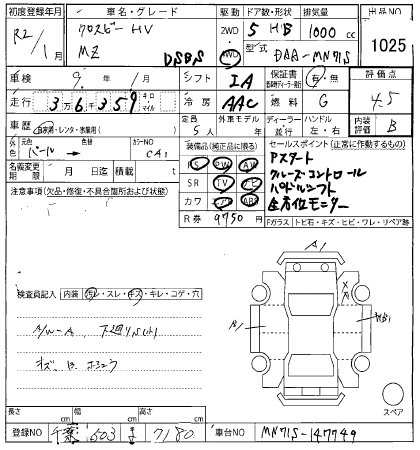 初度登録年月 車名・グレード 駆動 ドア数・形状 排気量 出品NO
R2/1月 クロスビー HV MZ DSBS 2WD 4WD 5 HB 1000cc 1025
型式 DAA-MN71S
車検 9年 1月 シフト IA 保証書 有・無 評価点
走行 3万6千359 キロ マイル 冷房 AAC 燃料 G 4.5
車歴 自家用・レンタ・ 定員 5人 外車モデル 年 ディーラー 並行 ハンドル 左・右 内装評価 B
外色 元色 パール 色替 カラーNO CA1 装備品(純正品に限る) セールスポイント(正常に作動するもの)
PS PW AW Pスタート
名義変更期限 月 日迄 積載 t SR TV ナビ クルーズコントロール
注意事項(欠品・修復・不具合箇所および状態) カワ ABS パドルシフト
全方位モニター
R券 9750円 Fガラス トビ石・キズ・ヒビ・ワレ・リペア跡
A1
検査員記入 内装 汚レ・スレ・キズ・キレ・コゲ・穴
A/W-A 下廻りS(小)
スペア
長さ cm 幅 cm 高さ cm
登録NO 千葉 503 ま 7180 車台NO MN71S-147749